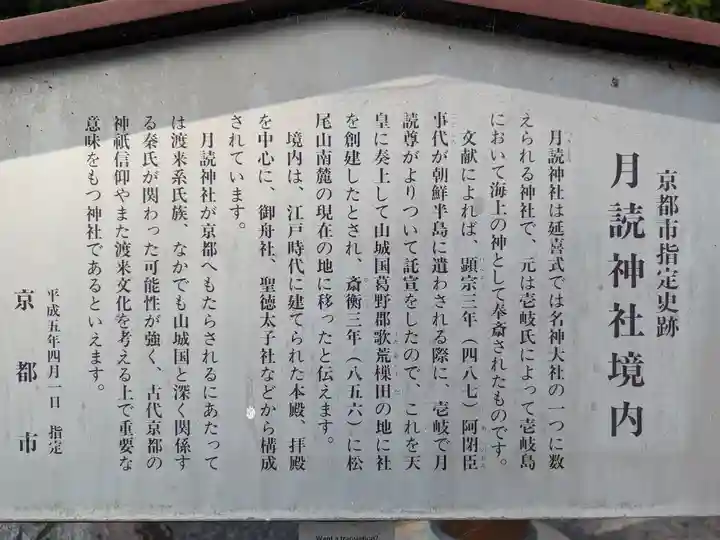 京都市指定史跡
月読神社境内
月読神社は延喜式では名神大社の一つに数
えられる神社で、元は壱岐氏によって壱岐島
において海上の神として奉斎されたものです。
文献によれば、顕宗三年（四八七）阿閉臣
事代が朝鮮半島に遣わされる際に、壱岐で月
読尊がよりついて託宣をしたので、これを天
皇に奏上して山城国葛野郡歌荒樔田の地に社
を創建したとされ、斎衡三年（八五六）に松
尾山南麓の現在の地に移ったと伝えます。
境内は、江戸時代に建てられた本殿、拝殿
を中心に、御舟社、聖徳太子社などから構成
されています。
月読神社が京都へもたらされるにあたって
は渡来系氏族、なかでも山城国と深く関係す
る秦氏が関わった可能性が強く、古代京都の
神祇信仰やまた渡来文化を考える上で重要な
意味をもつ神社であるといえます。
平成五年四月一日 指定
京都市
Want a translation?